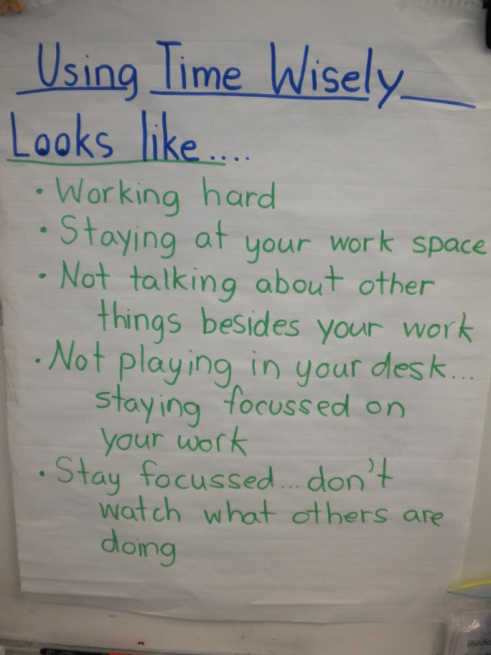 Using Time Wisely
Looks like....
• Working hard
• Staying at your work space
• Not talking about other
things besides your work
• Not playing in your desk...
staying focussed on
your work
• Stay focussed...don't
watch what others are
doing